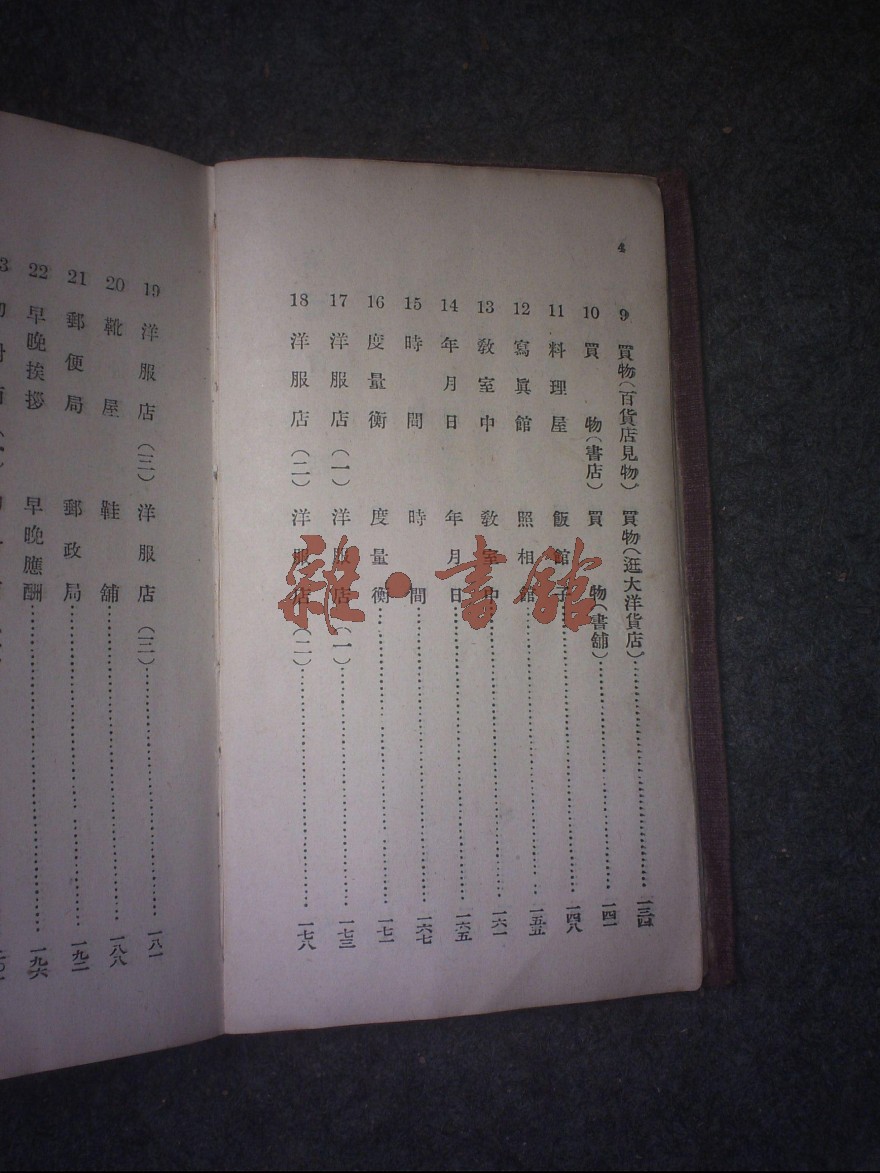 4
9 買物(百貨店見物) 買物(逛大洋貨店)……一三四
10 買 物(書店) 買 物(書舖)……一四一
11 料理屋 飯館子……一四八
12 寫眞館 照相館……一五五
13 敎室中 敎室中……一六一
14 年月日 年月日……一六五
15 時間 時間……一六七
16 度量衡 度量衡……一七一
17 洋服店(一) 洋服店(一)……一七三
18 洋服店(二) 洋服店(二)……一七八
19 洋服店(三) 洋服店(三)……一八一
20 靴屋 鞋舖……一八八
21 郵便局 郵政局……一九二
22 早晚挨拶 早晚應酬……一九六
雜·書館